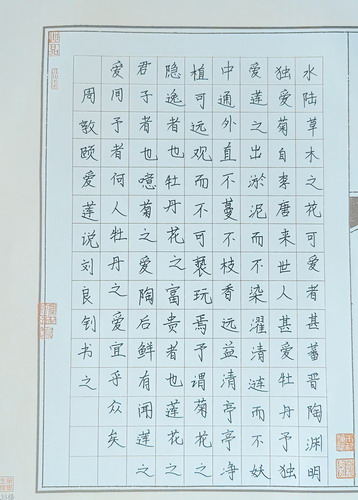 水陆草木之花可爱者甚蕃晋陶渊明
独爱菊自李唐来世人甚爱牡丹予独
爱莲之出淤泥而不染濯清涟而不妖
中通外直不蔓不枝香远益清亭亭净
植可远观而不可亵玩焉予谓菊花之
隐逸者也牡丹花之富贵者也莲花之
君子者也噫菊之爱陶后鲜有闻莲之
爱同予者何人牡丹之爱宜乎众矣
周敦颐爱莲说刘良钊书之